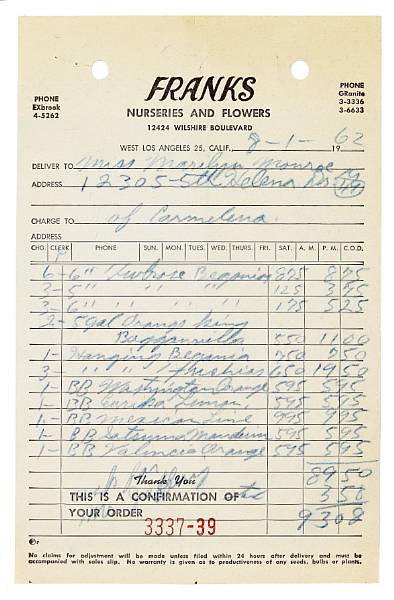 FRANKS
NURSERIES AND FLOWERS
12424 WILSHIRE BOULEVARD
PHONE
EXbrook
4-5262
PHONE
GRanite
3-3336
3-6633
WEST LOS ANGELES 25, CALIF., 8-1- 1962
DELIVER TO Miss Marilyn Monroe
ADDRESS 12305-5th Helena Dr.
CHARGE TO of Carmelena
ADDRESS
CHG. CLERK PHONE SUN. MON. TUES. WED. THURS. FRI. SAT. A.M. P.M. C.O.D.
6-6" Tuberose Begonias 875
3-5" " " " 125 375
3-6" " " " 175 525
2-5gal Orange King
550 1100
1-Hanging Begonia 750 750
3- " " 650 1950
1-BB Washington Orange 595 595
1-BB Eureka Lemon 595 595
1-BB Mexican Lime 995 995
1-BB Satsuma Mandarin 595 595
1-BB Valencia Orange 595 595
Thank You 8950
THIS IS A CONFIRMATION OF 358
YOUR ORDER 9308
3337-39
No claims for adjustment will be made unless filed within 24 hours after delivery and must be
accompanied with sales slip. No warranty is given as to productiveness of any seeds, bulbs or plants.